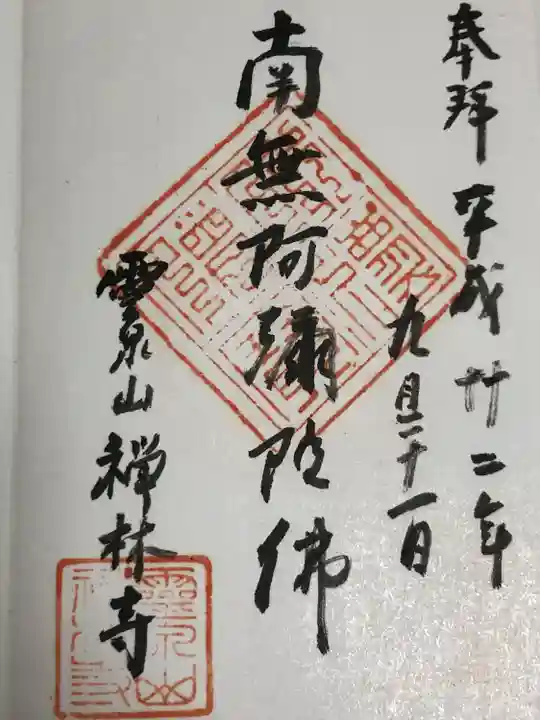 奉拜 平成廿二年
九月二十一日
南無阿彌陀佛
靈泉山禅林寺